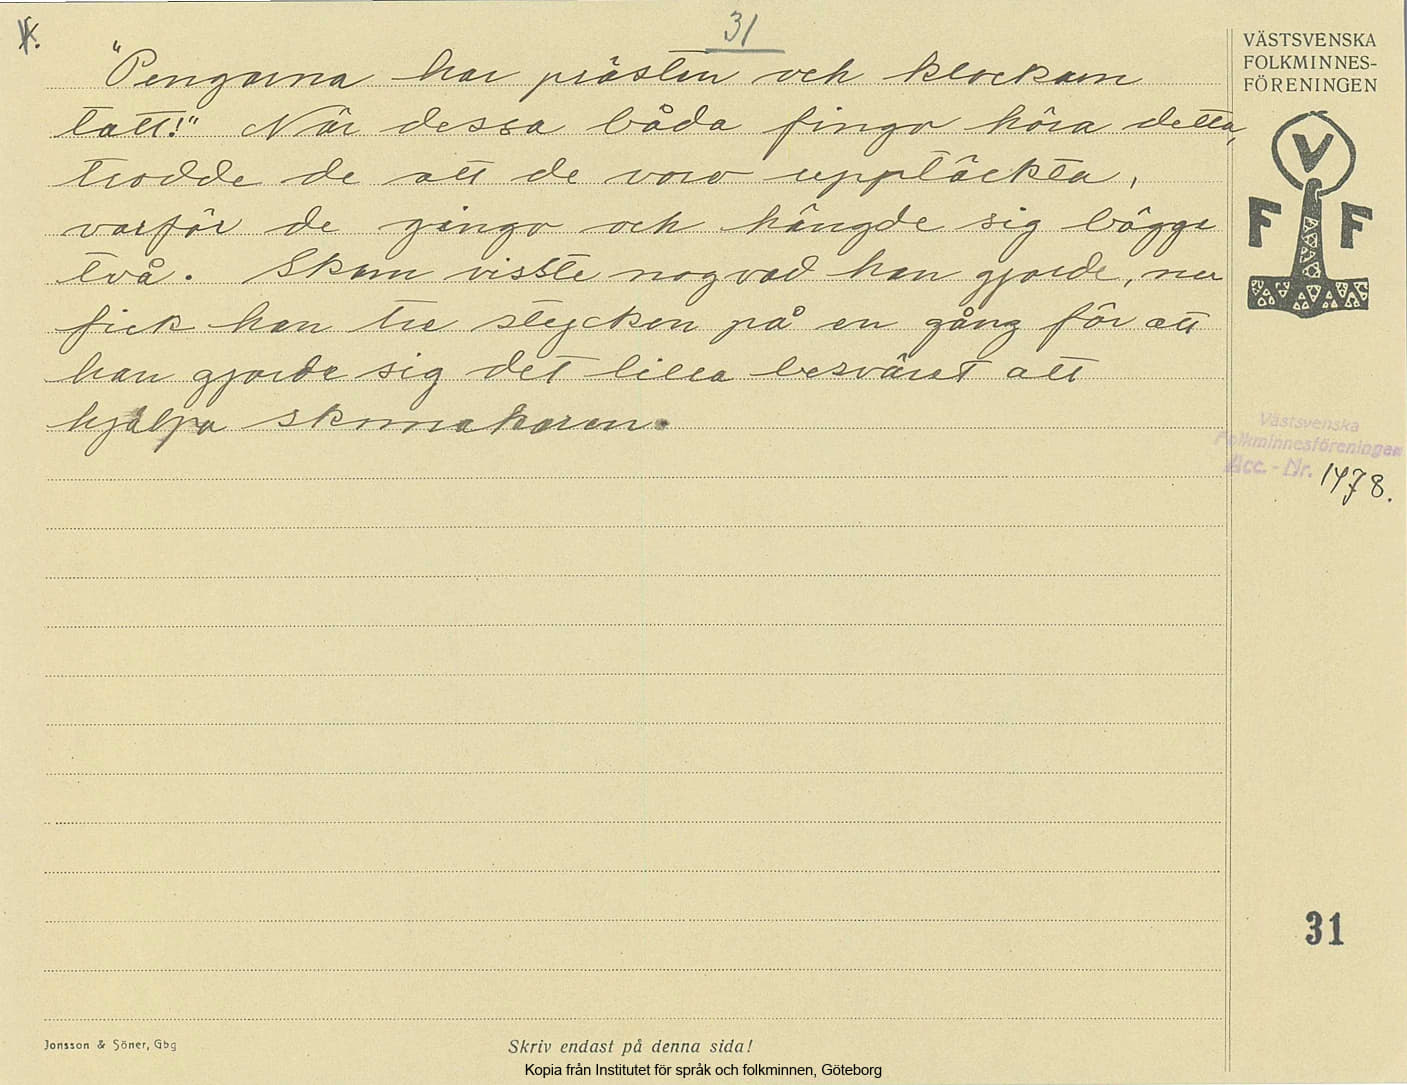 31
"Pengarna har prästen och klockarn
tatt!" När dessa båda fingo höra detta,
trodde de att de voro upptäckta,
varför de gingo och hängde sig bägge
två. Skam visste nog vad han gjorde, nu
fick han tre stycken på en gång för att
han gjorde sig det lilla besväret att
hjälpa skomakaren.
VÄSTSVENSKA
FOLKMINNES-
FÖRENINGEN
V
F F
Västsvenska
Folkminnesföreningen
Acc.-Nr. 1478.
31
Jonsson & Söner, Gbg
Skriv endast på denna sida!
Kopia från Institutet för språk och folkminnen, Göteborg